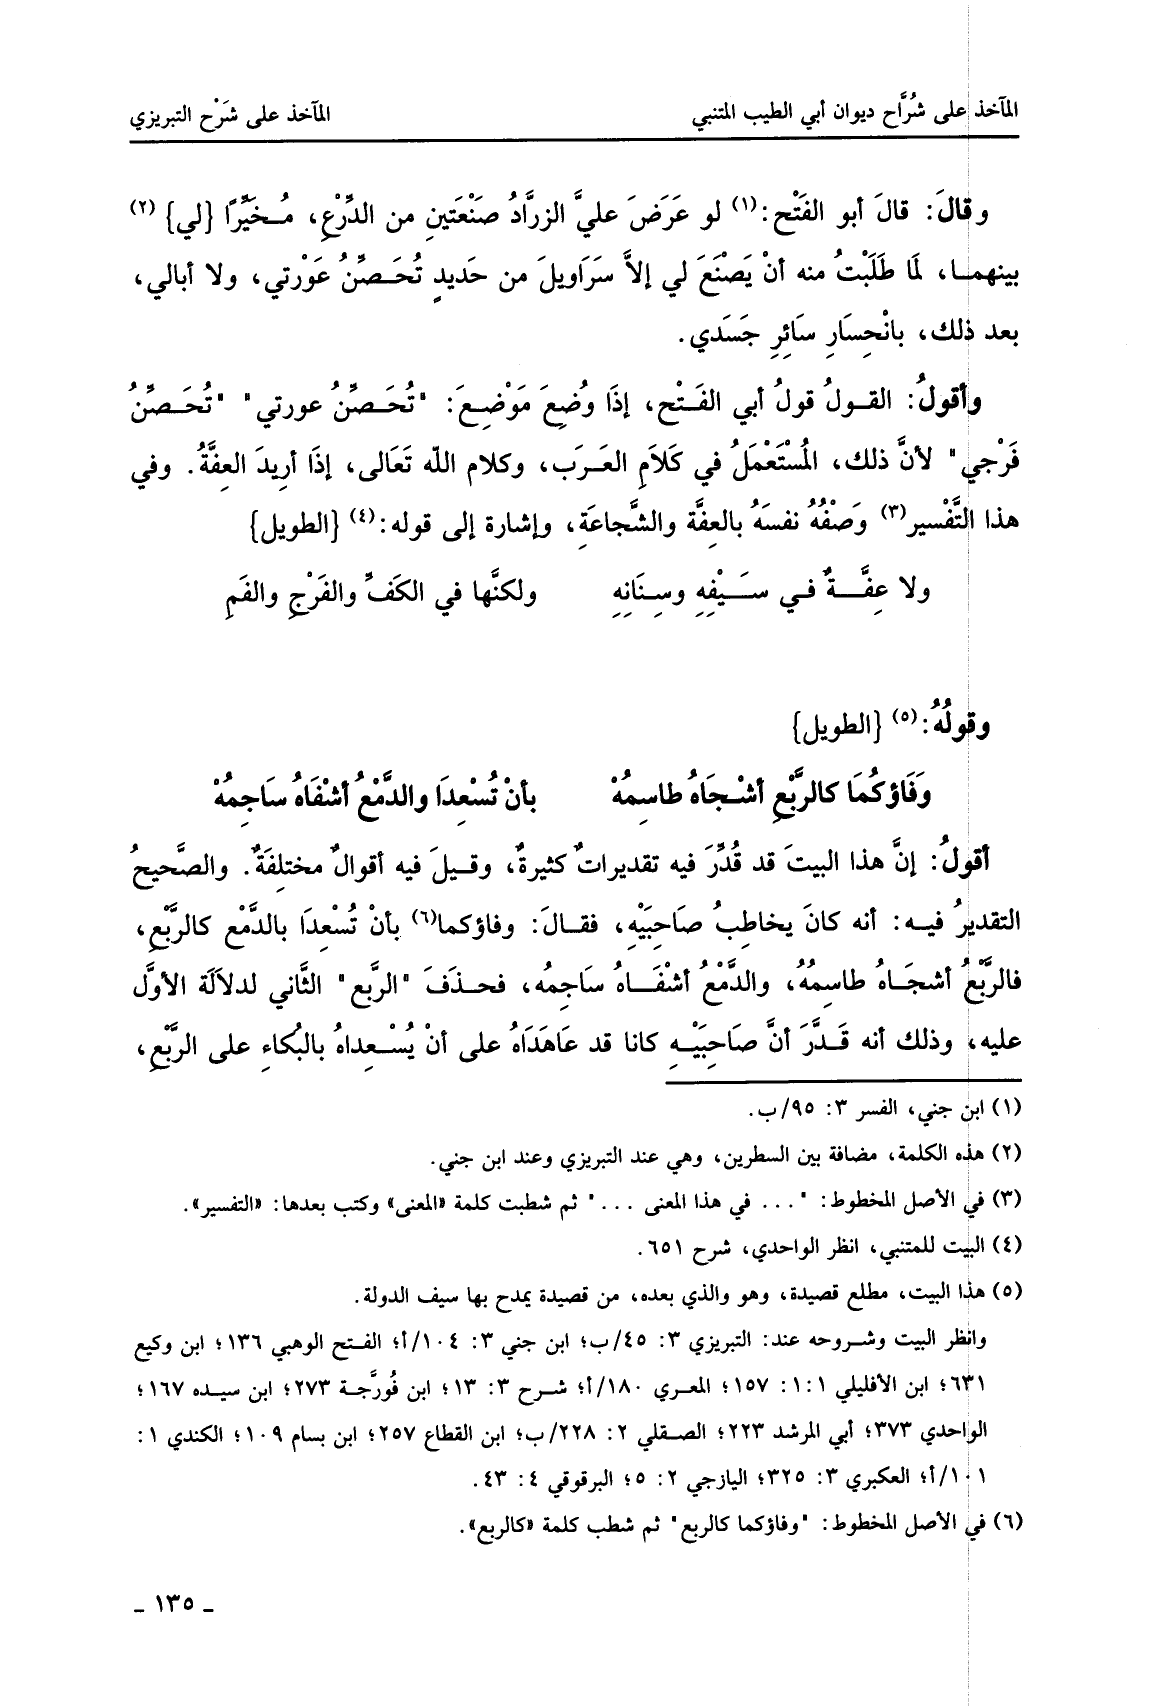 المآخذ على شُرَّاح ديوان أبي الطيب المتنبي
المآخذ على شَرْح التبريزي
وقالَ: قالَ أبو الفَتْح:(١) لو عَرَضَ عليَّ الزرَّادُ صَنْعَتَينِ من الدِّرْعِ، مُـخَيِّرًا {لي} (٢)
بينهمـا، لَمَا طَلَبْتُ منه أنْ يَصْنَعَ لي إلاَّ سَرَاويلَ من حَديدٍ تُحَـصِّنُ عَوْرتي، ولا أبالي،
بعد ذلك، بانْحِسَارِ سَائِرِ جَسَدي.
وأقولُ: القـولُ قولُ أبي الفَـتْح، إذَا وُضِعَ مَوْضِـعَ: "تُحَـصِّنُ عورتي" "تُحَـصِّنُ
فَرْجي" لأنَّ ذلك، المُسْتَعْمَلُ في كَلاَمِ العَـرَب، وكلام اللّه تَعَالى، إذَا أريدَ العِفَّةُ. وفي
هذا التَّفْسير(٣) وَصْفُهُ نفسَهُ بالعِفَّة والشَّجاعَةِ، وإشارة إلى قوله:(٤) {الطويل}
ولا عِفَّــةٌ فـي سَـيْفِهِ وسِـنَانِهِ ولكنَّها في الكَفِّ والفَرْجِ والفَمِ
وقولُهُ:(٥) {الطويل}
وَفَاؤكُمَا كالرَّبْعِ أشْـجَاهُ طاسِمُهْ بأنْ تُسْعِدَا والدَّمْعُ أشْفَاهُ سَاجِمُهْ
أقولُ: إنَّ هذا البيتَ قد قُدِّرَ فيه تقديراتٌ كثيرةٌ، وقـيلَ فيه أقوالٌ مختلِفَةٌ. والصَّحيحُ
التقديرُ فيـه: أنه كانَ يخاطِبُ صَاحِبَيْهِ، فقـالَ: وفاؤكما(٦) بأنْ تُسْعِدَا بالدَّمْع كالرَّبْعِ،
فالرَّبْعُ أشجَـاهُ طاسِمُهُ، والدَّمْعُ أشْفَـاه سَاجِمُه، فحـذَفَ "الربَّع" الثَّاني لدلاَلَة الأوَّل
عليه، وذلك أنه قَـدَّرَ أنَّ صَاحِبَيْـهِ كانا قد عَاهَدَاهُ على أنْ يُسْـعِداهُ بالبُكاءِ على الربَّعِ،
(١) ابن جني، الفسر ٣: ٩٥/ب.
(٢) هذه الكلمة، مضافة بين السطرين، وهي عند التبريزي وعند ابن جني.
(٣) في الأصل المخطوط: "... في هذا المعنى ..." ثم شطبت كلمة «المعنى» وكتب بعدها: «التفسير».
(٤) البيت للمتنبي، انظر الواحدي، شرح ٦٥١.
(٥) هذا البيت، مطلع قصيدة، وهو والذي بعده، من قصيدة يمدح بها سيف الدولة.
وانظر البيت وشـروحه عند: التبريزي ٣: ٤٥/ب؛ ابن جني ٣: ١٠٤/أ؛ الفـتح الوهبي ١٣٦؛ ابن وكيع
٦٣١؛ ابن الأفليلي ١:١: ١٥٧؛ المعـري ١٨٠/أ؛ شـرح ٣: ١٣؛ ابن فُورَّجـة ٢٧٣؛ ابن سيـده ١٦٧؛
الواحدي ٣٧٣؛ أبي المرشد ٢٢٣؛ الصـقلي ٢: ٢٢٨/ب؛ ابن القطاع ٢٥٧؛ ابن بسام ١٠٩؛ الكندي ١:
١٠١/أ؛ العكبري ٣: ٣٢٥؛ اليازجي ٢: ٥؛ البرقوقي ٤: ٤٣.
(٦) في الأصل المخطوط: "وفاؤكما كالربع" ثم شطب كلمة «كالربع».
ـ ١٣٥ ـ